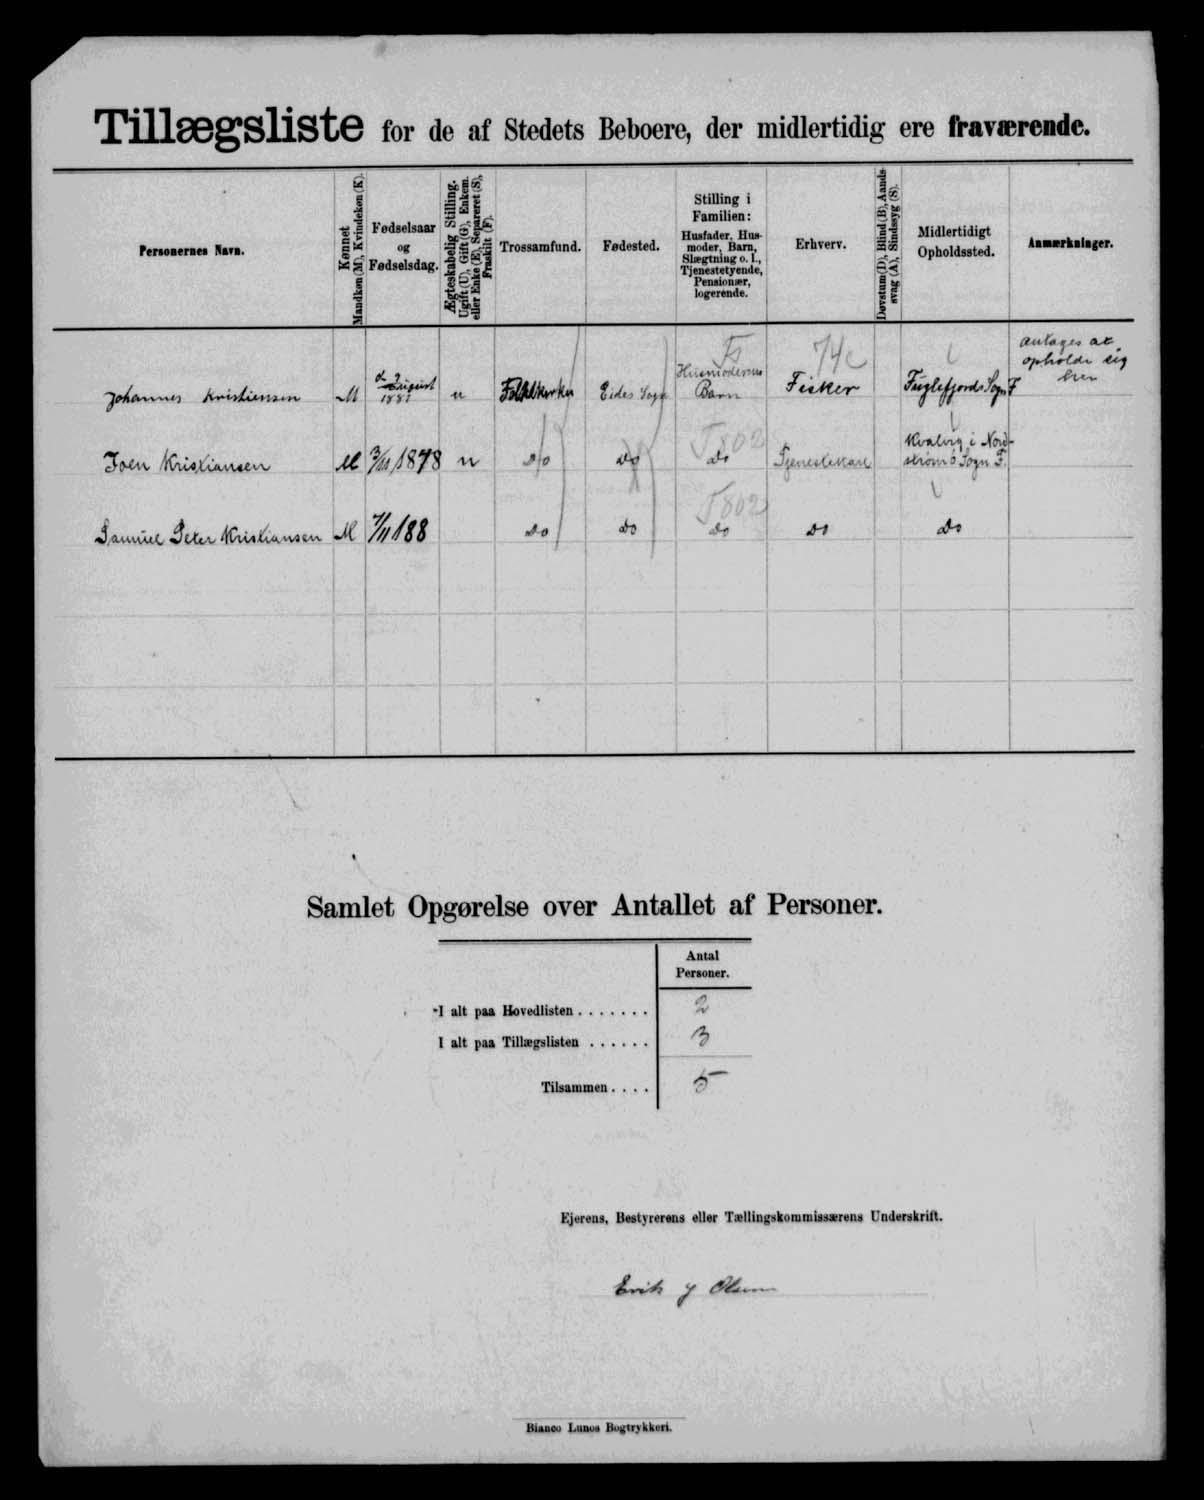 Tillægsliste for de af Stedets Beboere, der midlertidig ere fraværende.
Personernes Navn.
Kønnet
Mandkøn (M), Kvindekøn (K).
Fødselsaar
og
Fødselsdag.
Ægteskabelig Stilling.
Ugift (U), Gift (G), Enkem.
eller Enke (E), Separeret (S),
Fraskilt (F).
Trossamfund.
Fødested.
Stilling i
Familien:
Husfader, Hus-
moder, Barn,
Slægtning o. l.,
Tjenestetyende,
Pensionær,
logerende.
Erhverv.
Døvstum (D), Blind (B), Aands-
svag (A), Sindssyg (S).
Midlertidigt
Opholdssted.
Anmærkninger.
Johannes Kristiensen M August 1881 u Folkekirken Eides Sogn Husmoderens Barn Fisker Fuglefjords Sogn F
Fs 74c
antages at
opholde sig
her
Joen Kristiansen M 3/11 1878 u Do Do Do Tjenestekarl Kvalvig i Nord-
strømø Sogn F.
T802
Samuel Peter Kristiansen M 7/11 188 Do Do Do Do Do
T802
Samlet Opgørelse over Antallet af Personer.
Antal
Personer.
I alt paa Hovedlisten . . . . . . . 2
I alt paa Tillægslisten . . . . . . 3
Tilsammen . . . . 5
Ejerens, Bestyrerens eller Tællingskommissærens Underskrift.
Erik J Olsen
Bianco Lunos Bogtrykkeri.